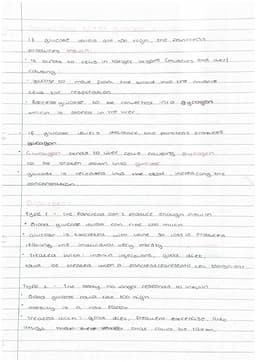 · If glucose levels are too high, the pancreas
produces insulin
· It binds to cells in target organs (muscles and liver)
causing
· glucose to move from the blood into the muscle
cells for respiration
· Excess glucose to be converted into glycogen
which is stored in the liver.
· If glucose levels decrease, the pancreas produces
glucagon
· Glucagon binds to liver cells causing glycogen
to be broken down into glucose
· glucose is released into the blood, increasing the
concentration
Diabetes:
Type 1 - The Pancreas can't produce enough insulin
· Blood glucose levels can rise too much
· Glucose is excreted with urine
making the individual very thirsty
· Treated with insulin injections, good diet
Type 2 - The body no longer responds to insulin
· Blood glucose too high
obesity is a risk factor
· Treated with good diet, frequent exercise,